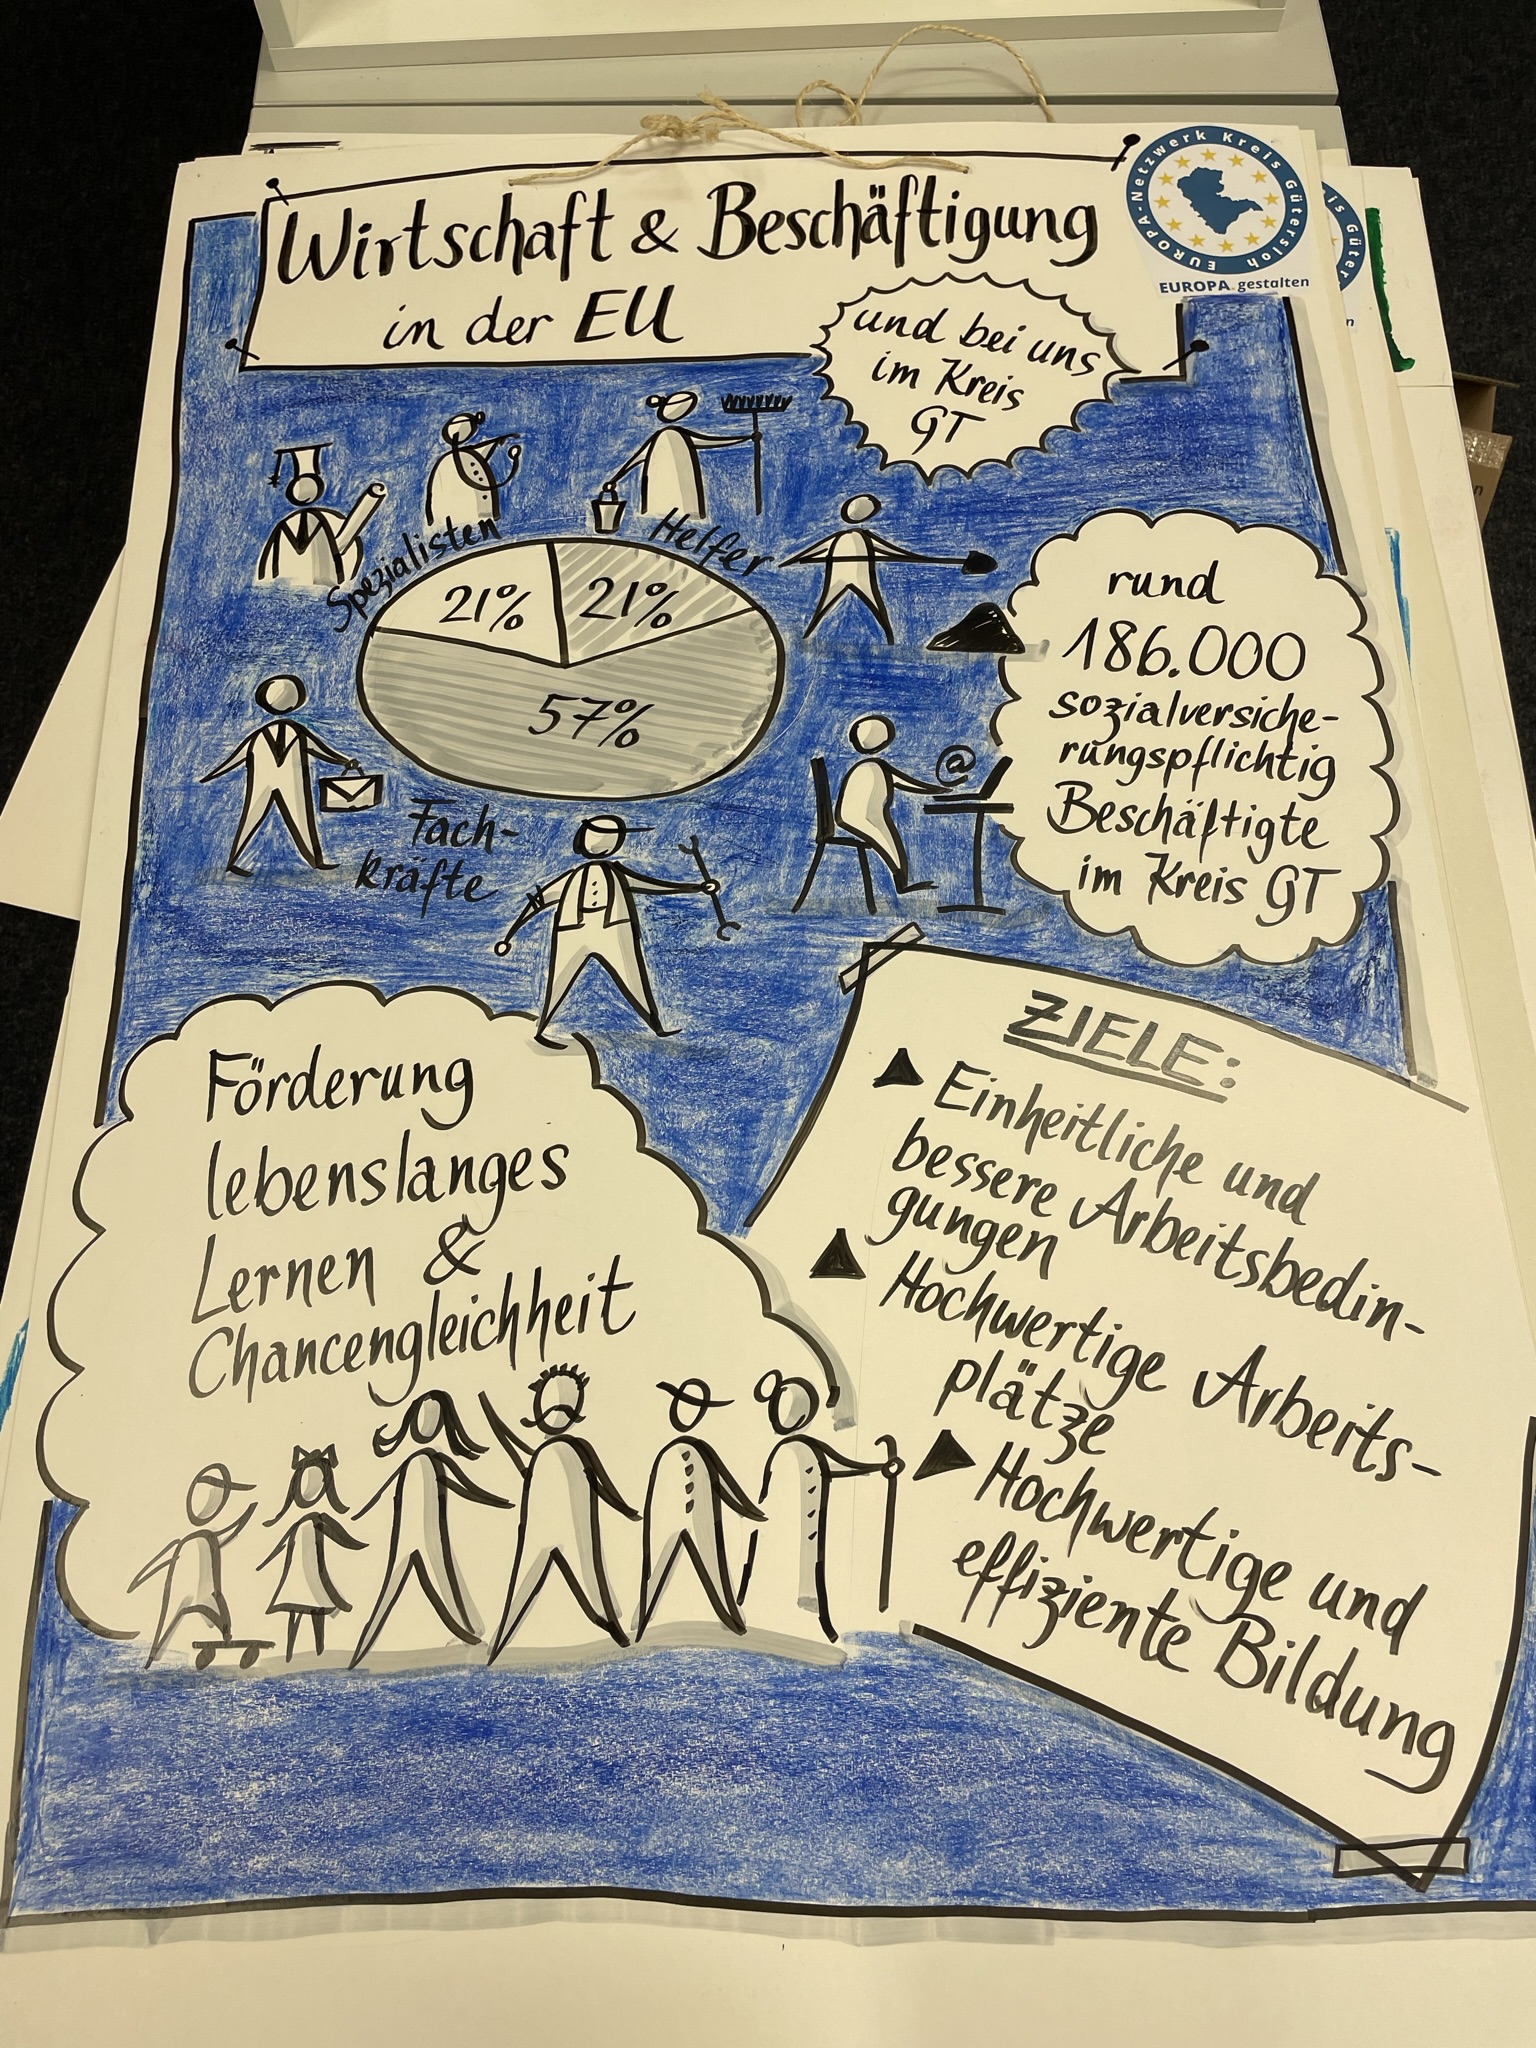 Wirtschaft & Beschäftigung
in der EU
EUROPA-Netzwerk Kreis Gütersloh
EUROPA.gestalten
und bei uns
im Kreis
GT
Spezialisten
21%
Helfer
21%
57%
Fach-
kräfte
@
rund
186.000
sozialversiche-
rungspflichtig
Beschäftigte
im Kreis GT
Förderung
lebenslanges
Lernen &
Chancengleichheit
ZIELE:
Einheitliche und
bessere Arbeitsbedin-
gungen
Hochwertige Arbeits-
plätze
Hochwertige und
effiziente Bildung